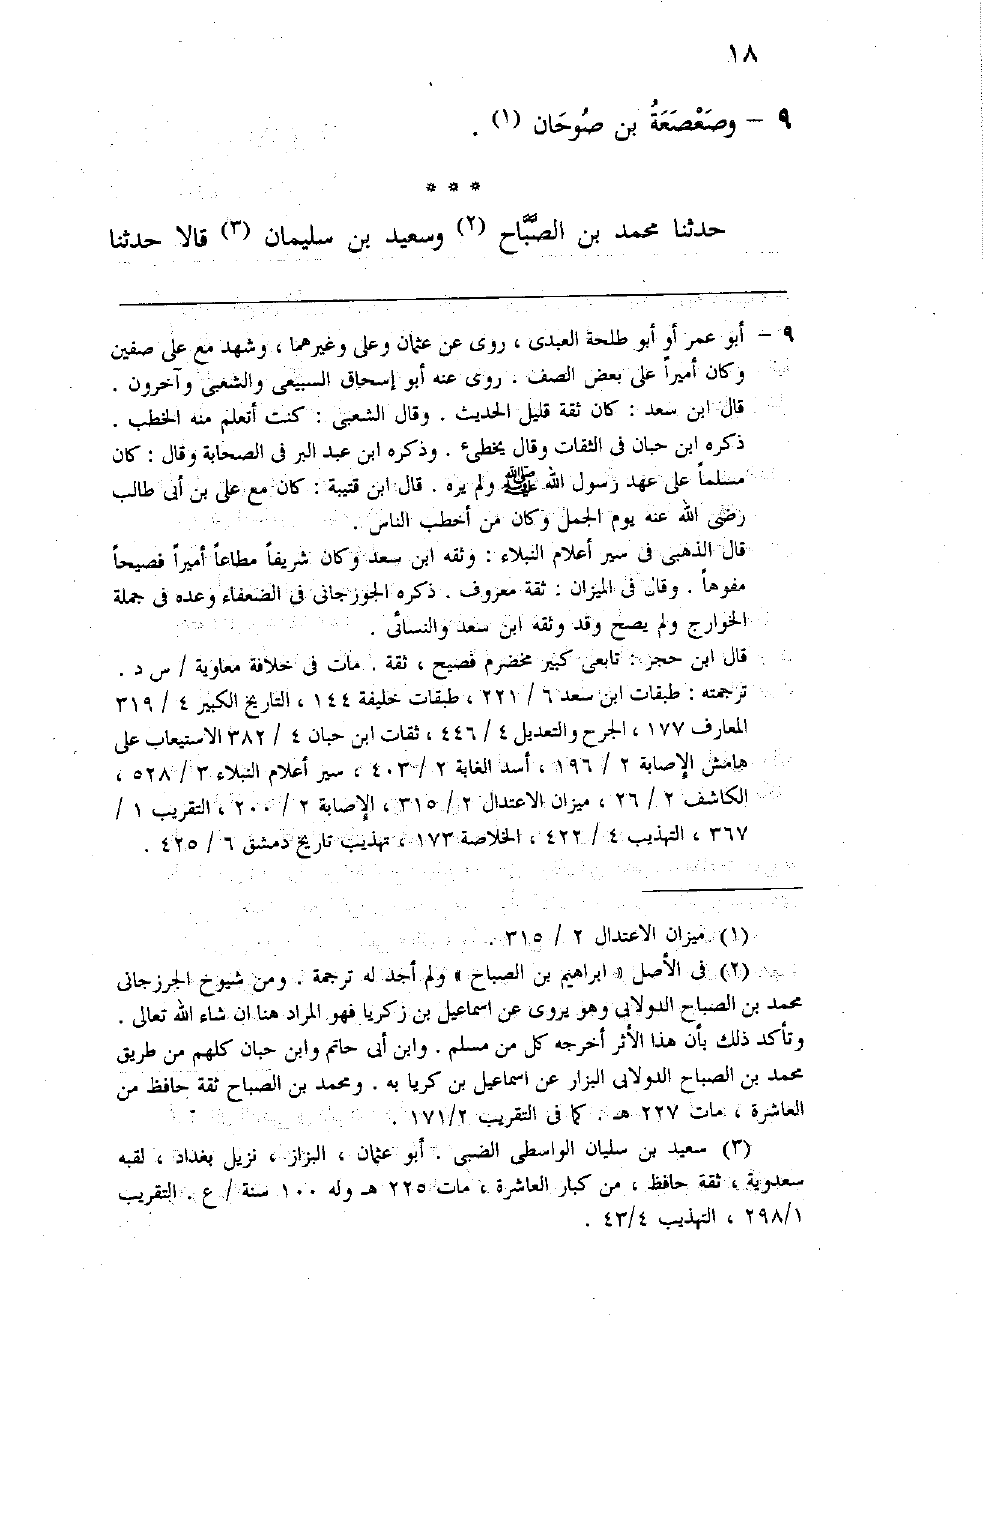 ١٨
٩ – وصَعْصَعَةُ بن صوُحَان (١) .
* * *
حدثنا محمد بن الصبَّاح (٢) وسعيد بن سليمان (٣) قالا حدثنا
٩ – أبو عمر أو أبو طلحة العبدى ، روى عن عثمان وعلى وغيرهما ، وشهد مع على صفين
وكان أميراً على بعض الصف . روى عنه أبو إسحاق السبيعى والشعبى وآخرون .
قال ابن سعد : كان ثقة قليل الحديث . وقال الشعبى : كنت أتعلم منه الخطب .
ذكره ابن حبان فى الثقات وقال يخطىء . وذكره ابن عبد البر فى الصحابة وقال : كان
مسلماً على عهد رسول الله ﷺ ولم يره . قال ابن قتيبة : كان مع على بن أبى طالب
رضى الله عنه يوم الجمل وكان من أخطب الناس .
قال الذهبى فى سير أعلام النبلاء : وثقه ابن سعد وكان شريفاً مطاعاً أميراً فصيحاً
مفوهاً . وقال فى الميزان : ثقة معروف . ذكره الجوزجانى فى الضعفاء وعده فى جملة
الخوارج ولم يصح وقد وثقه ابن سعد والنسائى .
قال ابن حجر : تابعى كبير مخضرم فصيح ، ثقة . مات فى خلافة معاوية / س د .
ترجمته : طبقات ابن سعد ٦ / ٢٢١ ، طبقات خليفة ١٤٤ ، التاريخ الكبير ٤ / ٣١٩
المعارف ١٧٧ ، الجرح والتعديل ٤ / ٤٤٦ ، ثقات ابن حبان ٤ / ٣٨٢ الاستيعاب على
هامش الإصابة ٢ / ١٩٦ ، أسد الغابة ٢ / ٤٠٣ ، سير أعلام النبلاء ٣ / ٥٢٨ ،
الكاشف ٢ / ٢٦ ، ميزان الاعتدال ٢ / ٣١٥ ، الإصابة ٢ / ٢٠٠ ، التقريب ١ /
٣٦٧ ، التهذيب ٤ / ٤٢٢ ، الخلاصة ١٧٣ ، تهذيب تاريخ دمشق ٦ / ٤٢٥ .
(١) ميزان الاعتدال ٢ / ٣١٥ .
(٢) فى الأصل « ابراهيم بن الصباح » ولم أجد له ترجمة . ومن شيوخ الجرزجانى
محمد بن الصباح الدولابى وهو يروى عن اسماعيل بن زكريا فهو المراد هنا ان شاء الله تعالى .
وتأكد ذلك بأن هذا الأثر أخرجه كل من مسلم . وابن أبى حاتم وابن حبان كلهم من طريق
محمد بن الصباح الدولابى البزار عن اسماعيل بن كريا به . ومحمد بن الصباح ثقة حافظ من
العاشرة ، مات ٢٢٧ هـ . كما فى التقريب ١٧١/٢ .
(٣) سعيد بن سليان الواسطى الضبى . أبو عثمان ، البزاز ، نزيل بغداد ، لقبه
سعدوية ، ثقة حافظ ، من كبار العاشرة ، مات ٢٢٥ هـ وله ١٠٠ سنة / ع . التقريب
٢٩٨/١ ، التهذيب ٤٣/٤ .